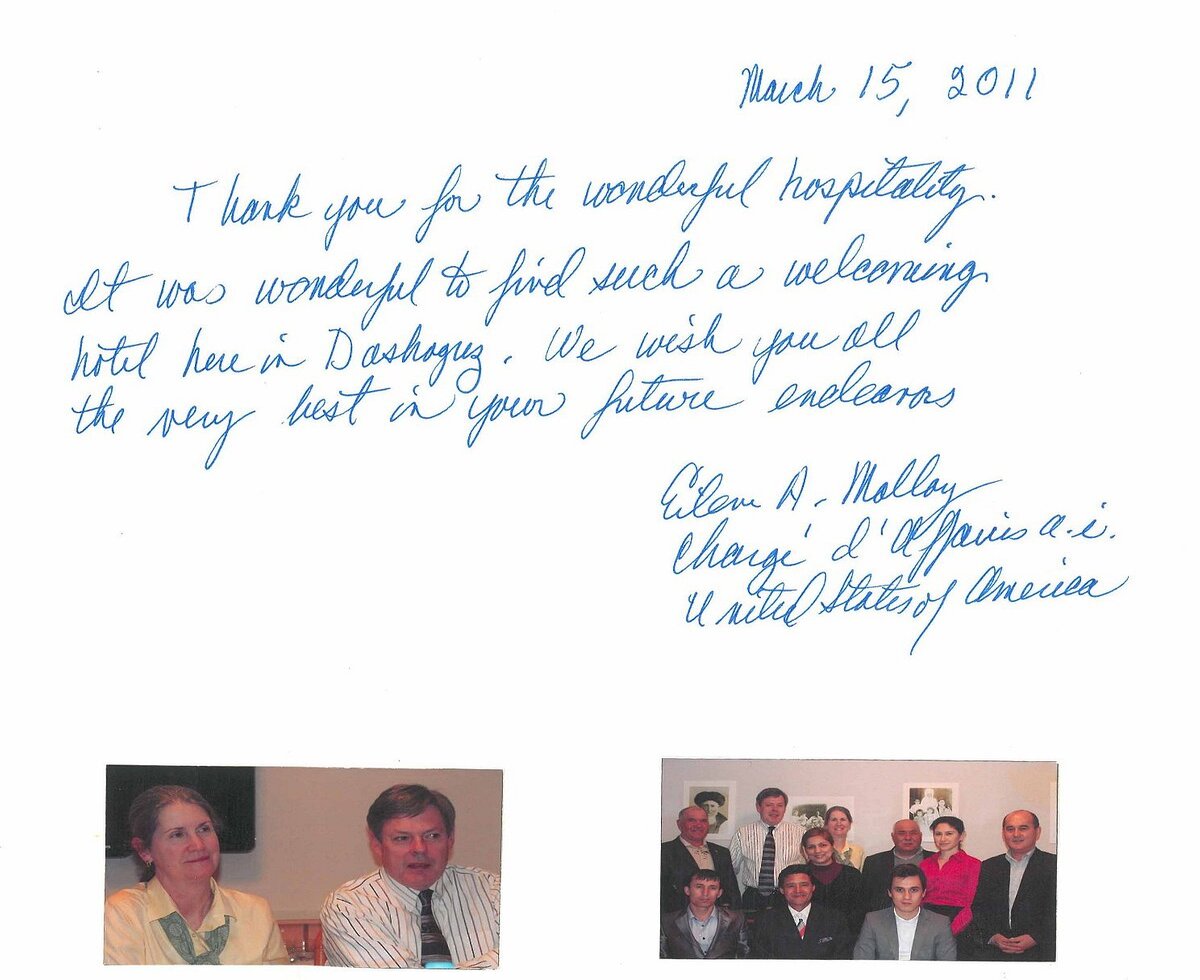 March 15, 2011
Thank you for the wonderful hospitality.
It was wonderful to find such a welcoming
hotel here in Dashoguz. We wish you all
the very best in your future endeavors
Eileen A. Malloy
Chargé d'Affaires a.i.
United States of America